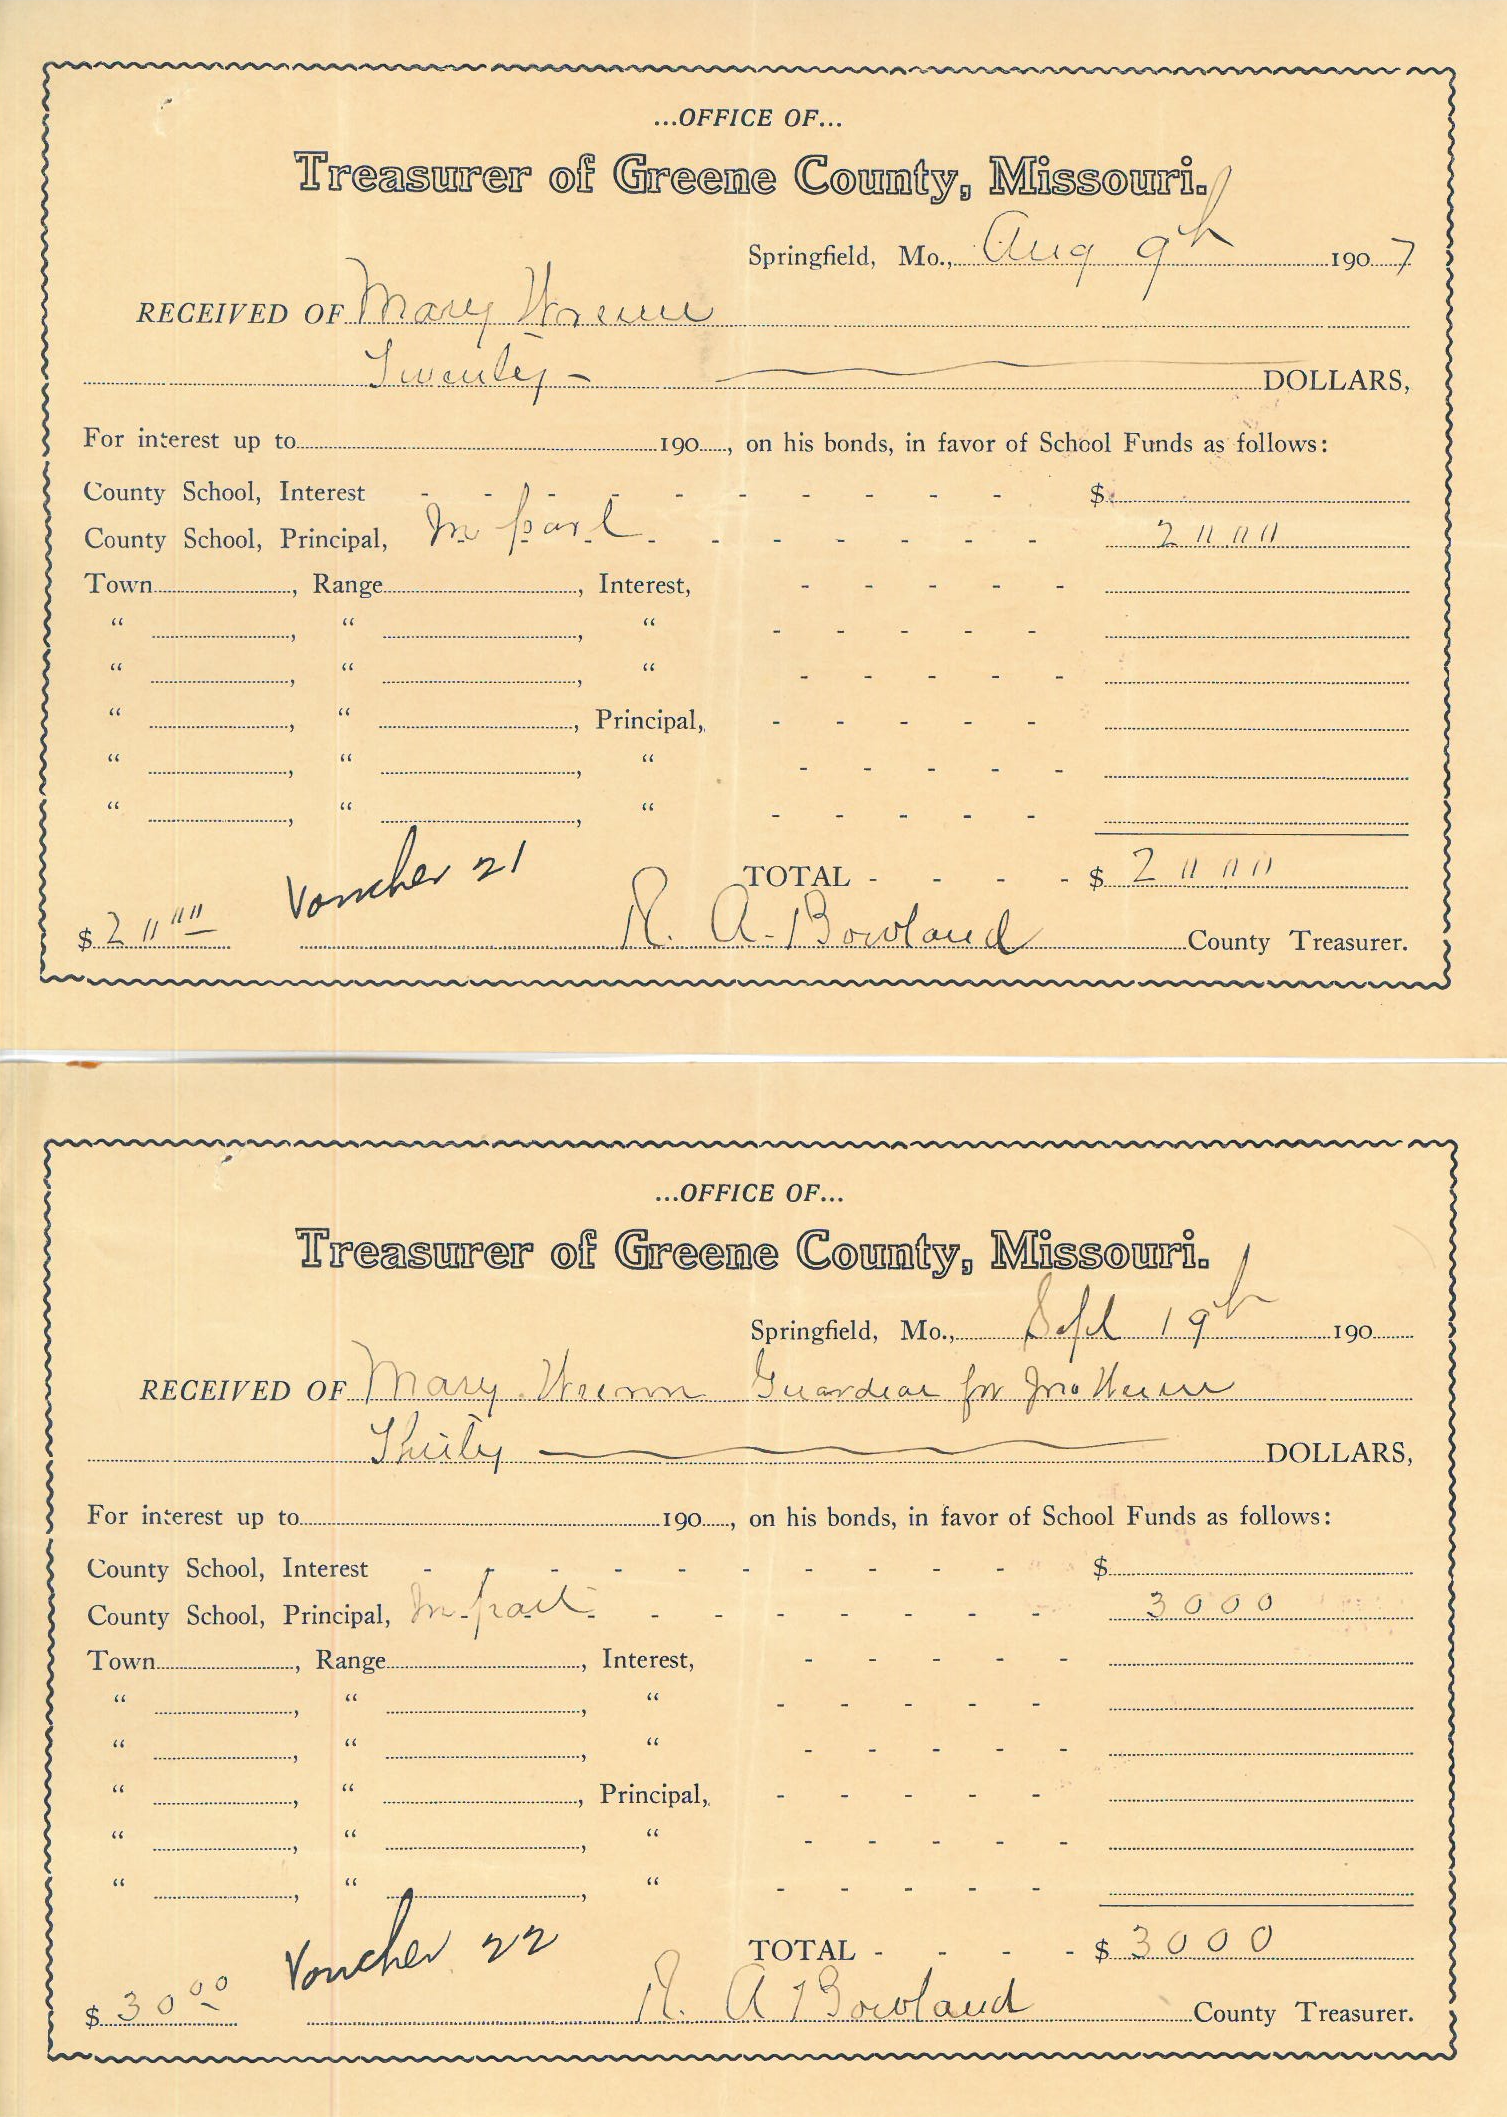 ...OFFICE OF...
Treasurer of Greene County, Missouri.
Springfield, Mo., Aug 9th 1907
RECEIVED OF Mary
Twenty - DOLLARS,
For interest up to 190, on his bonds, in favor of School Funds as follows:
County School, Interest - - - - - - - - - - $
County School, Principal, In part - - - - - - - 2 " " "
Town, Range, Interest, - - - - -
“ , “ , “ - - - - -
“ , “ , “ - - - - -
“ , “ , Principal, - - - - -
“ , “ , “ - - - - -
“ , “ , “ - - - - -
Voucher 21 TOTAL - - - - $ 2 " " "
$ 2 " " " R. A. Bowland County Treasurer.
...OFFICE OF...
Treasurer of Greene County, Missouri.
Springfield, Mo., Sept 19th 190
RECEIVED OF Mary Guardian for Jno
Thirty DOLLARS,
For interest up to 190, on his bonds, in favor of School Funds as follows:
County School, Interest - - - - - - - - - - $
County School, Principal, In part - - - - - - - - 3000
Town, Range, Interest, - - - - -
“ , “ , “ - - - - -
“ , “ , “ - - - - -
“ , “ , Principal, - - - - -
“ , “ , “ - - - - -
“ , “ , “ - - - - -
Voucher 22 TOTAL - - - - $ 3000
$ 30 00 R. A Bowland County Treasurer.